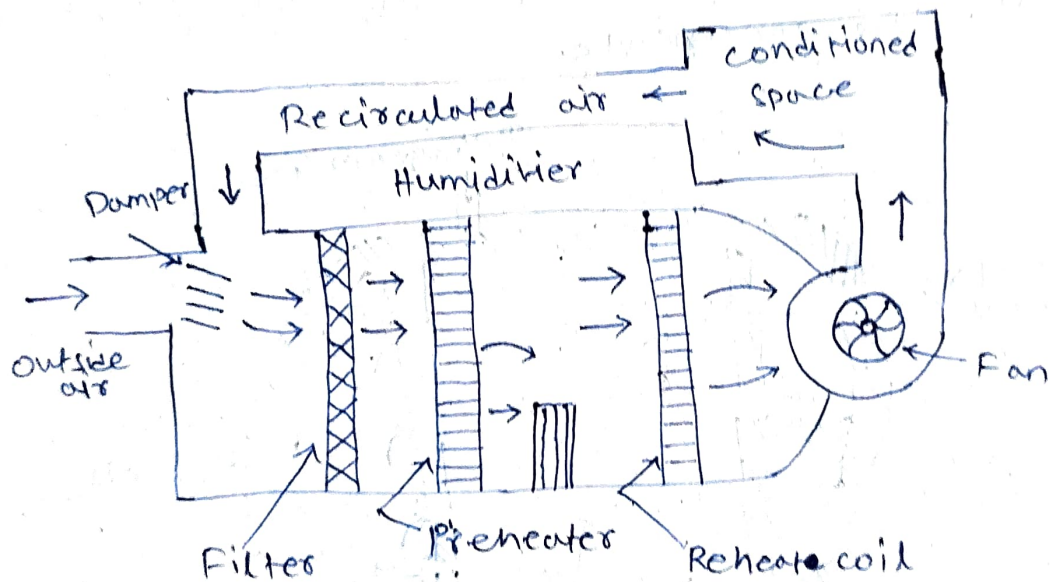 conditioned
space
Recirculated air
Humidifier
Damper
Outside
air
Fan
Filter
Preheater
Reheate coil